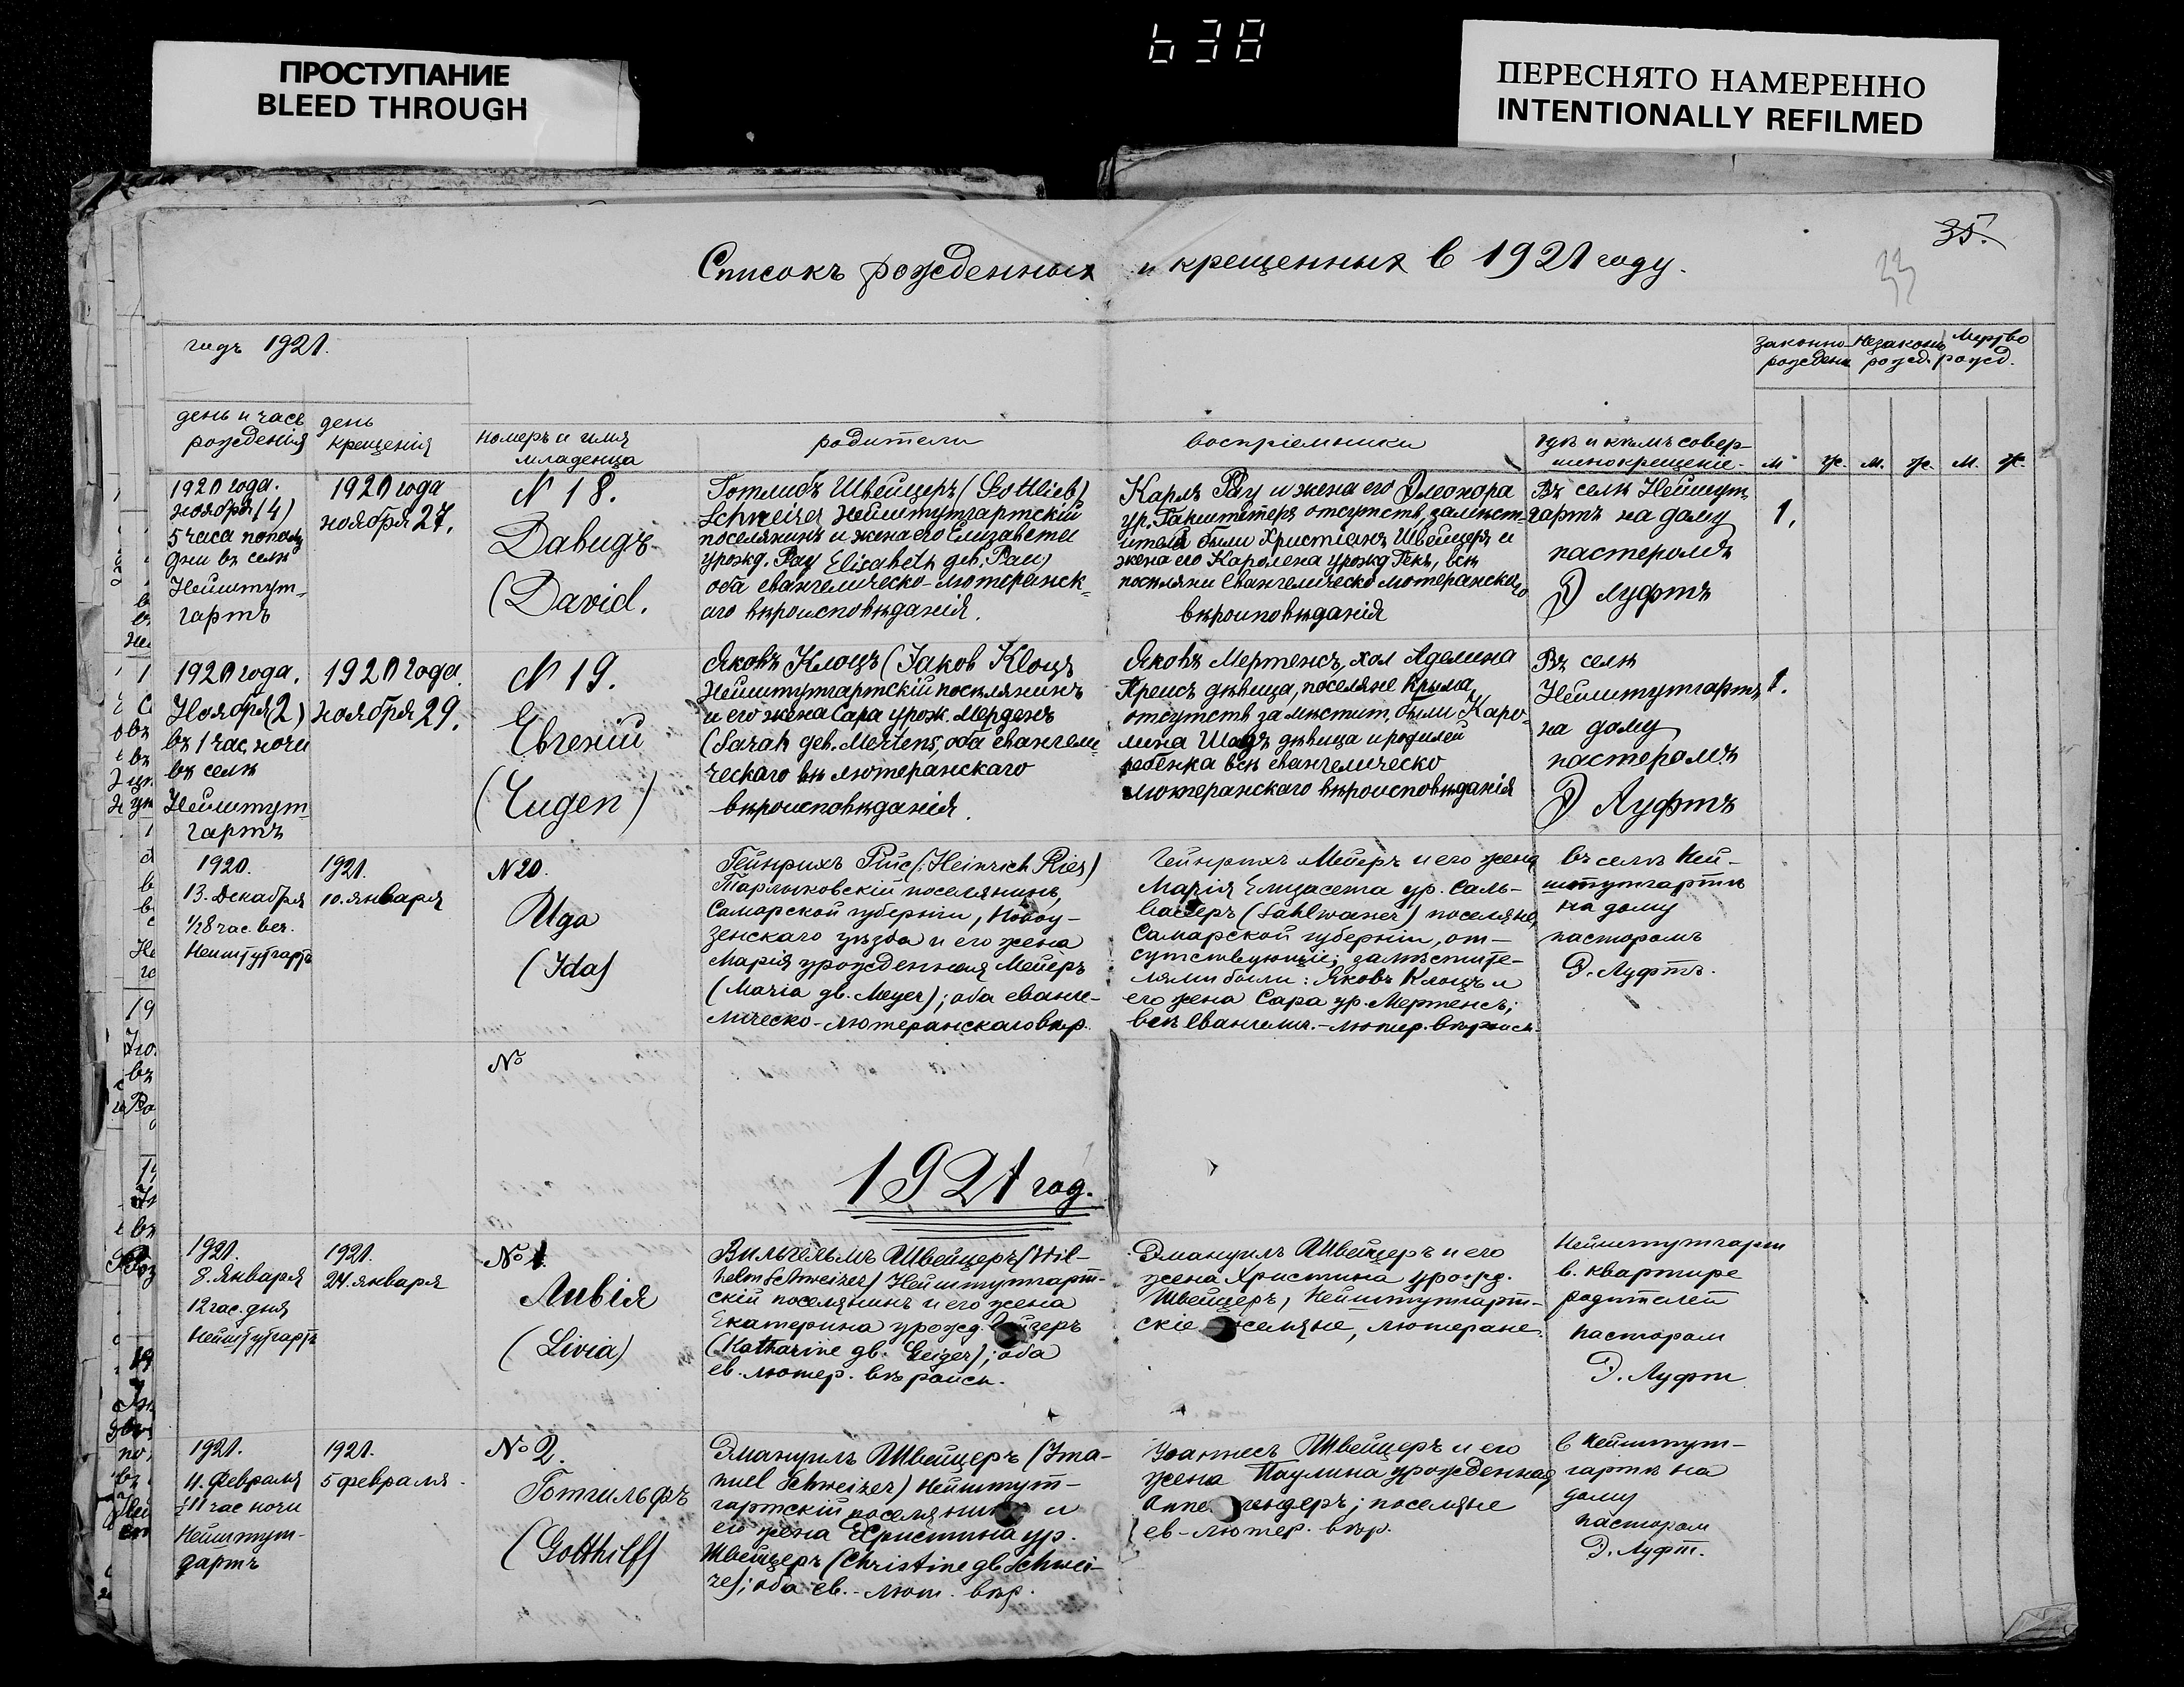 638
ПРОСТУПАНИЕ
BLEED THROUGH
ПЕРЕСНЯТО НАМЕРЕННО
INTENTIONALLY REFILMED
35.
33
Списокъ рожденных и крещенных в 1921 году.
годъ 1921.
законно- рожден
Незаконъ рожд.
Мертво рожд.
день и часъ
рожденія
день
крещенія
номеръ и имя
младенца
родители
воспріемники
гдѣ и кѣмъ совер-
шено крещеніе.
м. ж. м. ж. м. ж.
1920 года.
ноября (4)
5 часа пополу
дни въ селѣ
Нейштут-
гартъ
1920 года
ноября 27.
N 18.
Давидъ
(David.
Готлибъ Швейцеръ (Gottlieb)
Schweizer Нейштутгартскій
поселянинъ и жена его Елизавета
урожд. Рау Elisabeth geb. Rau)
оба евангелическо-лютеранск-
аго вѣроисповѣданія.
Карлъ Рау и жена его Элеонора
ур. отсутств, замѣст-
ители были Христіанъ Швейцеръ и
жена его Каролена урожд Гекъ, всѣ
посѣляни Евангелическо лютеранскаго
вѣроиповѣданія
Въ селѣ Нейштут
гартъ на дому
пастеромъ
Э Луфтъ
1,
1920 года.
Ноября (2)
въ 1 час. ночи
въ селѣ
Нейштут
гартъ
1920 года.
ноября 29.
N 19.
Евгеній
(Eugen)
Яковъ Клоцъ (Jakob Kloцъ
Нейштутгартскій посѣлянинъ
и его жена Сара урож. Мерденъ
(Sarah geb. Mertens, оба евангели
ческаго вѣ лютеранскаго
вѣроисповѣданія.
Яковъ Мертенсъ, хол Аделина
Преисъ дѣвица, поселяне Крыма,
отсутств замѣстит, были Каро-
лина дѣвица и родилей
ребенка всѣ евангелическо
лютеранскаго вѣроисповѣданія
Въ селѣ
Нейштутгартъ
на дому
пастеромъ
Э Луфтъ
1.
1920.
13. Декабря
½8 час. веч.
Нейштутгартъ
1921.
10. января
N 20.
Ида
(Ida)
Гейнрихъ Рисс (Heinrich Ries)
Тарлыковскій поселянинъ,
Самарской губерніи, Новоу-
зенскаго уѣзда и его жена
Марія урожденная Мейеръ
(Maria gb. Meyer); оба еванге-
лическо-лютеранскаго вѣр.
Гейнрихъ Мейеръ и его жена
Марія Елизасета ур. Саль-
васеръ (Sahlwaner) поселяне,
Самарской губерніи, от-
сутствующіе; замѣстите-
лями были: Яковъ Клоцъ и
его жена Сара ур. Мертенсъ;
всѣ Евангелич.-лютер. вѣроисп.
въ селѣ Ней-
штутгартъ
на дому
пасторомъ
Э. Луфтъ.
No
1921 год.
1921.
8. Января
12 час. дня
Нейштутгартъ
1921.
24. января
No 1.
Ливія
(Livia)
Вильгельмъ Швейцеръ (Wil-
helm Schweizer) Нейштутгарт-
скій поселянинъ и его жена
Екатерина урожд.
(Katharine gb. Geiger); оба
ев. лютер. вѣроисп.
Эмануилъ Швейцеръ и его
жена Христина урожд.
Швейцеръ, Нейштутгарт-
скіе поселяне, лютеране.
Нейштутгарт
в. квартире
родителей
пастором
Э. Луфт
1921.
Февраля
½11 час ночи
Нейштут-
гартъ
1921.
5 февраля.
No 2.
Готгильфъ
(Gotthilf)
Эмануилъ Швейцеръ (Ima-
nuel Schweizer) Нейштут-
гартскій поселянинъ и
его жена Христина ур.
Швейцеръ (Christine gb Schwei-
zer); оба ев.-лют. вѣр.
Іоаннесъ Швейцеръ и его
жена Паулина урожденная
поселяне
ев-лютер. вѣр.
в Нейштут-
гартѣ на
дому
пастором
Э. Луфт.